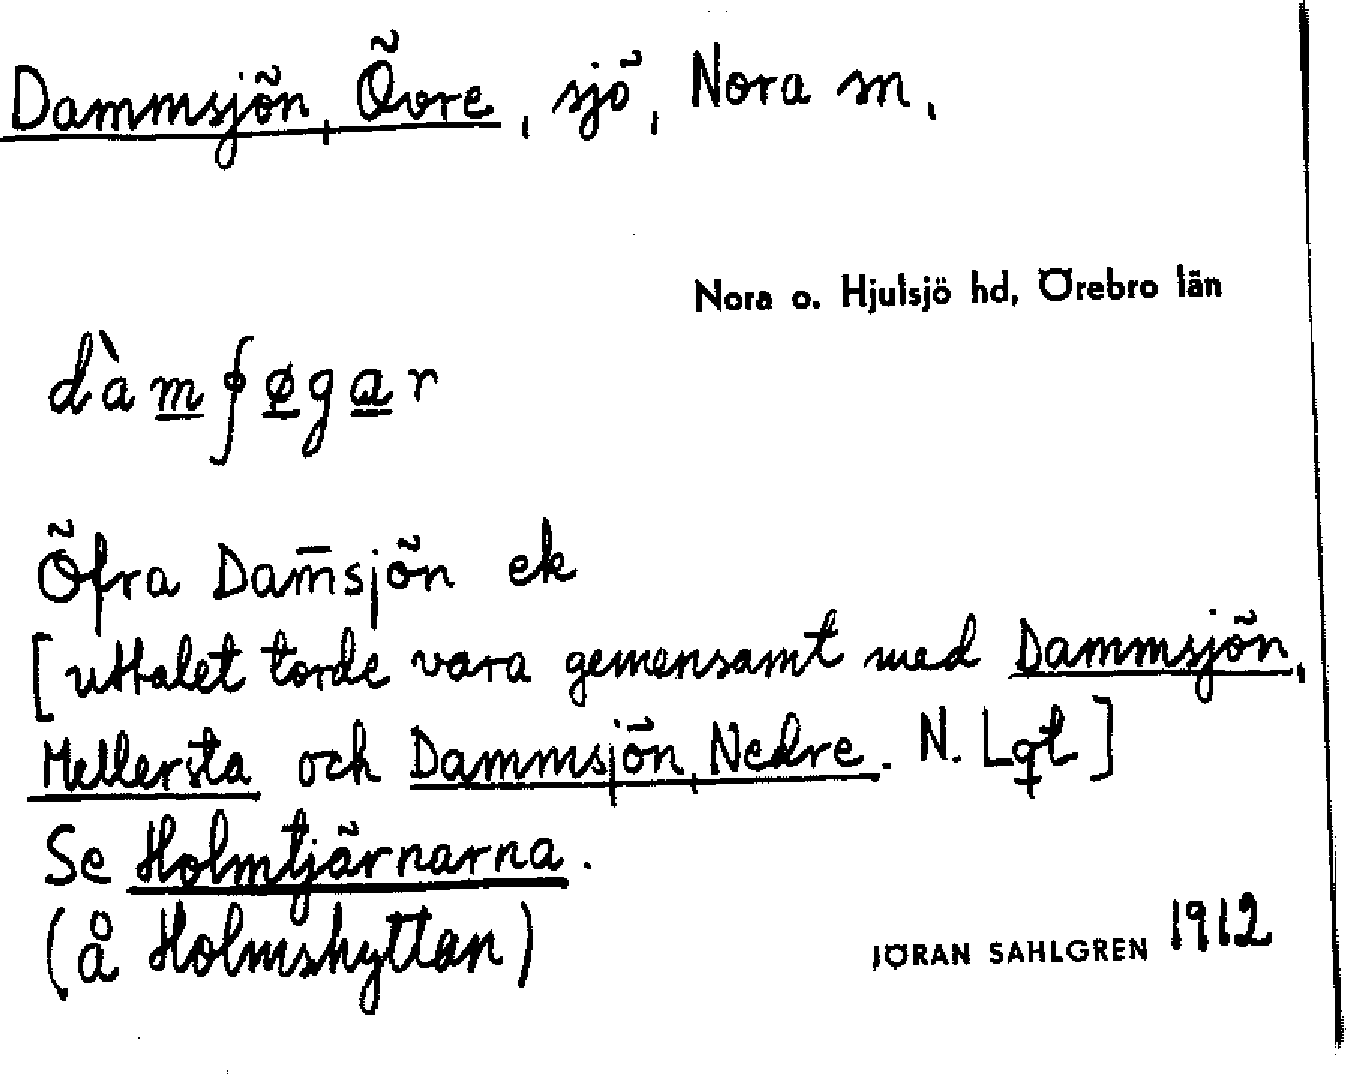 Dammsjön, Övre, sjö, Nora sn.
Nora o. Hjulsjö hd, Örebro län
dàmʃøgar
Öfra Dam̄sjön ek
[uttalet torde vara gemensamt med Dammsjön,
Mellersta och Dammsjön, Nedre. N. Lqt]
Se Holmtjärnarna.
(å Holmshyttan)
JÖRAN SAHLGREN 1912